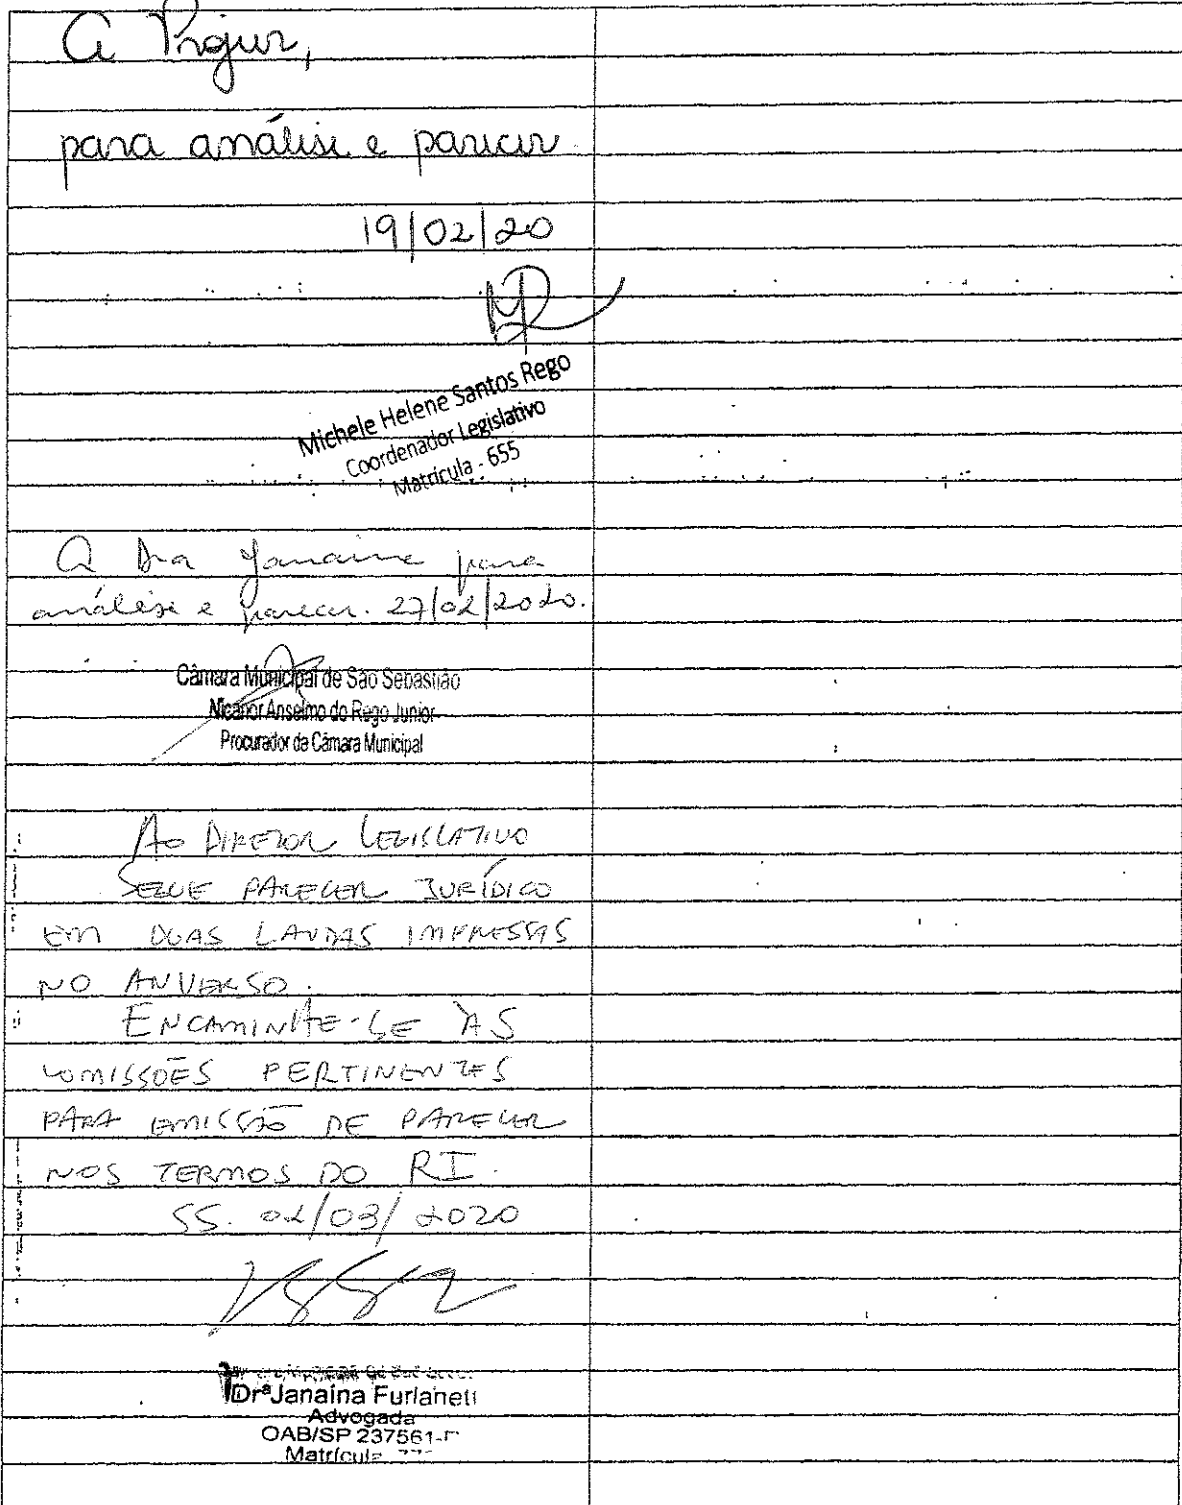 A Projur,
para análise e parecer.
19/02/20
Michele Helene Santos Rego
Coordenador Legislativo
Matrícula - 655
A Dra Janaina para
análise e parecer. 27/02/2020.
Câmara Municipal de São Sebastião
Nicanor Anselmo do Rego Junior
Procurador da Câmara Municipal
Ao DIRETOR LEGISLATIVO
SEGUE PARECER JURÍDICO
EM DUAS LAUDAS IMPRESSAS
NO ANVERSO.
ENCAMINHE-SE ÀS
COMISSÕES PERTINENTES
PARA EMISSÃO DE PARECER
NOS TERMOS DO RI.
SS. 02/03/2020
Drª Janaina Furlaneti
Advogada
OAB/SP 237561-
Matrícula